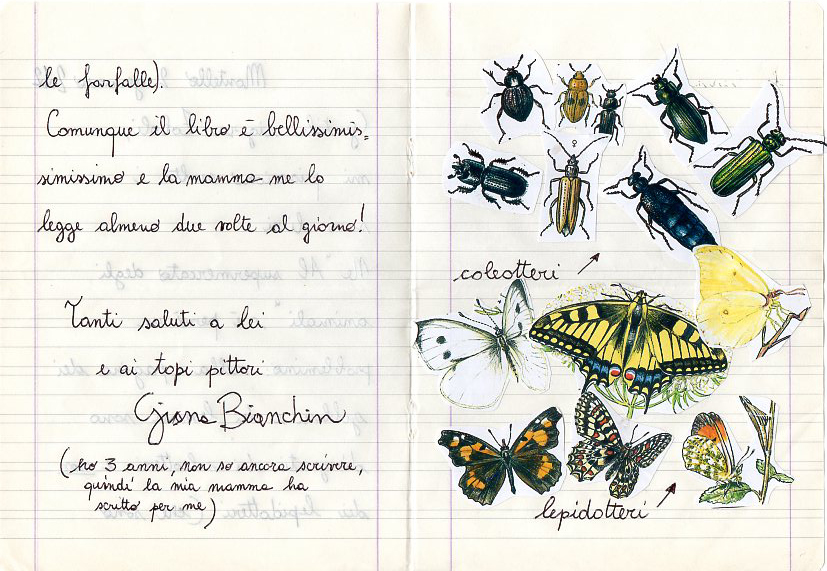 le farfalle).
Comunque il libro è bellissimis=
simissimo e la mamma me lo
legge almeno due volte al giorno!
Tanti saluti a lei
e ai topi pittori
Giona Bianchin
(ho 3 anni, non so ancora scrivere,
quindi la mia mamma ha
scritto per me)
coleotteri
lepidotteri